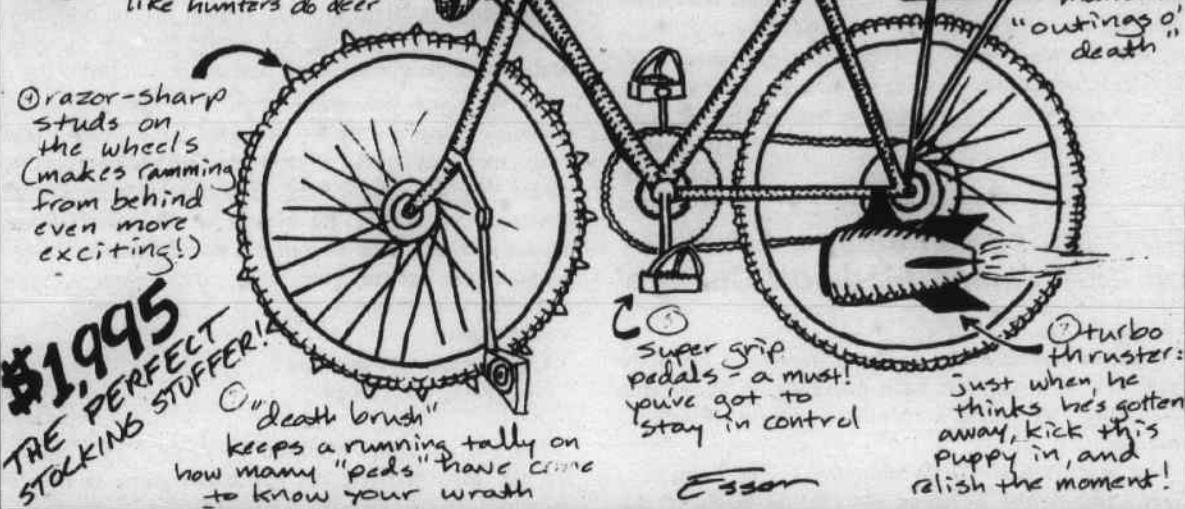 like hunters do deer
"outings o'
death"
④ razor-sharp
studs on
the wheels
(makes ramming
from behind
even more
exciting!)
$1,995
THE PERFECT
STOCKING STUFFER!
"death brush"
keeps a running tally on
how many "peds" have come
to know your wrath
⑤
super grip
pedals - a must!
you've got to
stay in control
⑦ turbo
thruster:
just when he
thinks he's gotten
away, kick this
puppy in, and
relish the moment!
Esson